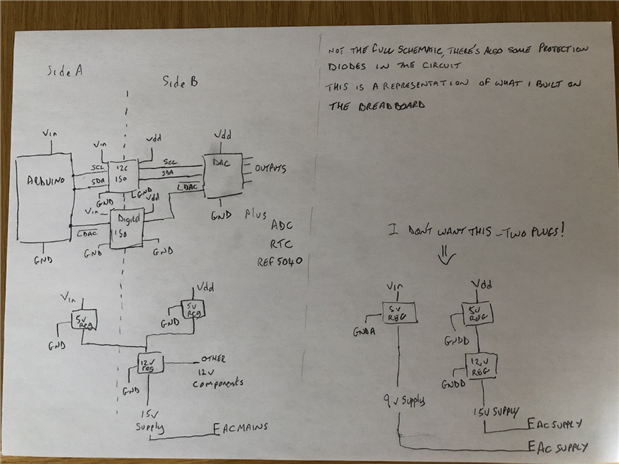 Side A
Side B
NOT THE FULL SCHEMATIC, THERE'S ALSO SOME PROTECTION
DIODES IN THE CIRCUIT
THIS IS A REPRESENTATION OF WHAT I BUILT ON
THE BREADBOARD
Vin
Vin
Vdd
Vdd
ARDUINO
SCL
SDA
I2C
ISO
SCL
SDA
DAC
OUTPUTS
GND
GND
LDAC
Vin
Vdd
Digital
ISO
LDAC
GND
GND
GND
GND
Plus
ADC
RTC
REF5040
I DON'T WANT THIS - TWO PLUGS!
Vin
5V
REG
GND
Vdd
5V
REG
GND
12V
REG
GND
OTHER
12V
Components
15V
Supply
EAC MAINS
Vin
5V
REG
GNDA
9V Supply
Vdd
5V
REG
GNDD
12V
REG
GNDD
15V SUPPLY
EAC SUPPLY
EAC SUPPLY